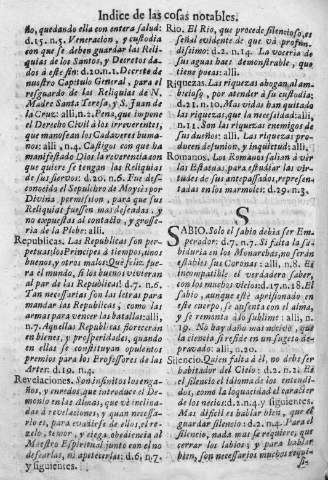 Indice de las cosas notables.
ño, quedando ella con entera salud:
d.15.n.5. Veneracion, y custodia
con que se deben guardar las Reli-
quias de los Santos, y Decretos da-
dos à este fin: d.20.n.1. Decreto de
nuestro Capitulo General, para el
resguardo de las Reliquias de N.
Madre Santa Teresa, y S. Juan de
la Cruz: alli, n.2. Pena, que impone
el Derecho Civil à los irreverentes,
que manosean los Cadaveres huma-
nos: alli, n.4. Castigos con que ha
manifestado Dios la reverencia con
que quiere se tengan las Reliquias
de sus siervos: d.20. n.6. Fue des-
conocido el Sepulcro de Moysès por
Divina permission, para que sus
Reliquias fuessen mas deseadas, y
no expuestas al contacto, y grosse-
ria de la Plebe: alli.
Republicas. Las Republicas son per-
petuas: los Principes à tiempos, unos
buenos, y otros malos: Què feliz fue-
ra el mundo, si los buenos vivieran
al par de las Republicas! d.7. n.6.
Tan necessarias son las letras para
mandar las Republicas, como las
armas para vencer las batallas: alli,
n.7. Aquellas Republicas florecerán
en bienes, y prosperidades, quando
en ellas se constituyan opulentos
premios para los Professores de las
Artes: d.19. n.4.
Revelaciones. Son infinitos los enga-
ños, y enredos, que introduce el De-
monio en las almas, que vè inclina-
das à revelaciones, y quan necessa-
rio es, para evadirse de ellos, el re-
zelo, temor, y ciega obediencia al
Maestro Espiritual junto con el no
desearlas, ni apetecerlas: d.6. n.7.
y siguientes.
Rio. El Rio, que procede silencioso, es
señal evidente de que và profun-
dissimo: d.2. n.14. La voceria de
sus aguas haze demonstrable, que
tiene pocas: alli.
Riquezas. Las riquezas ahogan al am-
bicioso, por atender à su custodia:
d.21. n.10. Mas vidas han quitado
las riquezas, que la necessidad: alli,
n.11. Son las riquezas enemigos de
sus dueños: alli. Las riquezas pro-
ducen desunion, y inquietud: alli.
Romanos. Los Romanos salian à vèr
las Estatuas, para estudiar las vir-
tudes de sus antepassados, represen-
tadas en los marmoles: d.29. n.3.
S
SABIO. Solo el sabio debia ser Em-
perador: d.7. n.7. Si falta la sa-
biduria en los Monarcas, no seràn
estables las Coronas: alli, n.8. Es
incompatible el verdadero saber,
con los muchos vicios: d.17. n.18. El
sabio, aunque està aprisionado en
este cuerpo, se ausenta con el alma,
y se remonta à lo sublime: alli, n.
19. No hay daño mas nocivo, que
la ciencia si reside en un sugeto de-
pravado: alli, n.20.
Silencio. Quien falta à èl, no debe ser
habitador del Cielo: d.2. n.11. Es
el silencio el idioma de los entendi-
dos, como la loquacidad el caracter
de los necios: d.2. n.4. y siguientes.
Mas dificil es hablar bien, que el
guardar silencio: d.2. n.4. Para el
silencio, nada mas se requiere, que
cerrar los labios; y para hablar
bien, son necessarios muchos requi-
si-